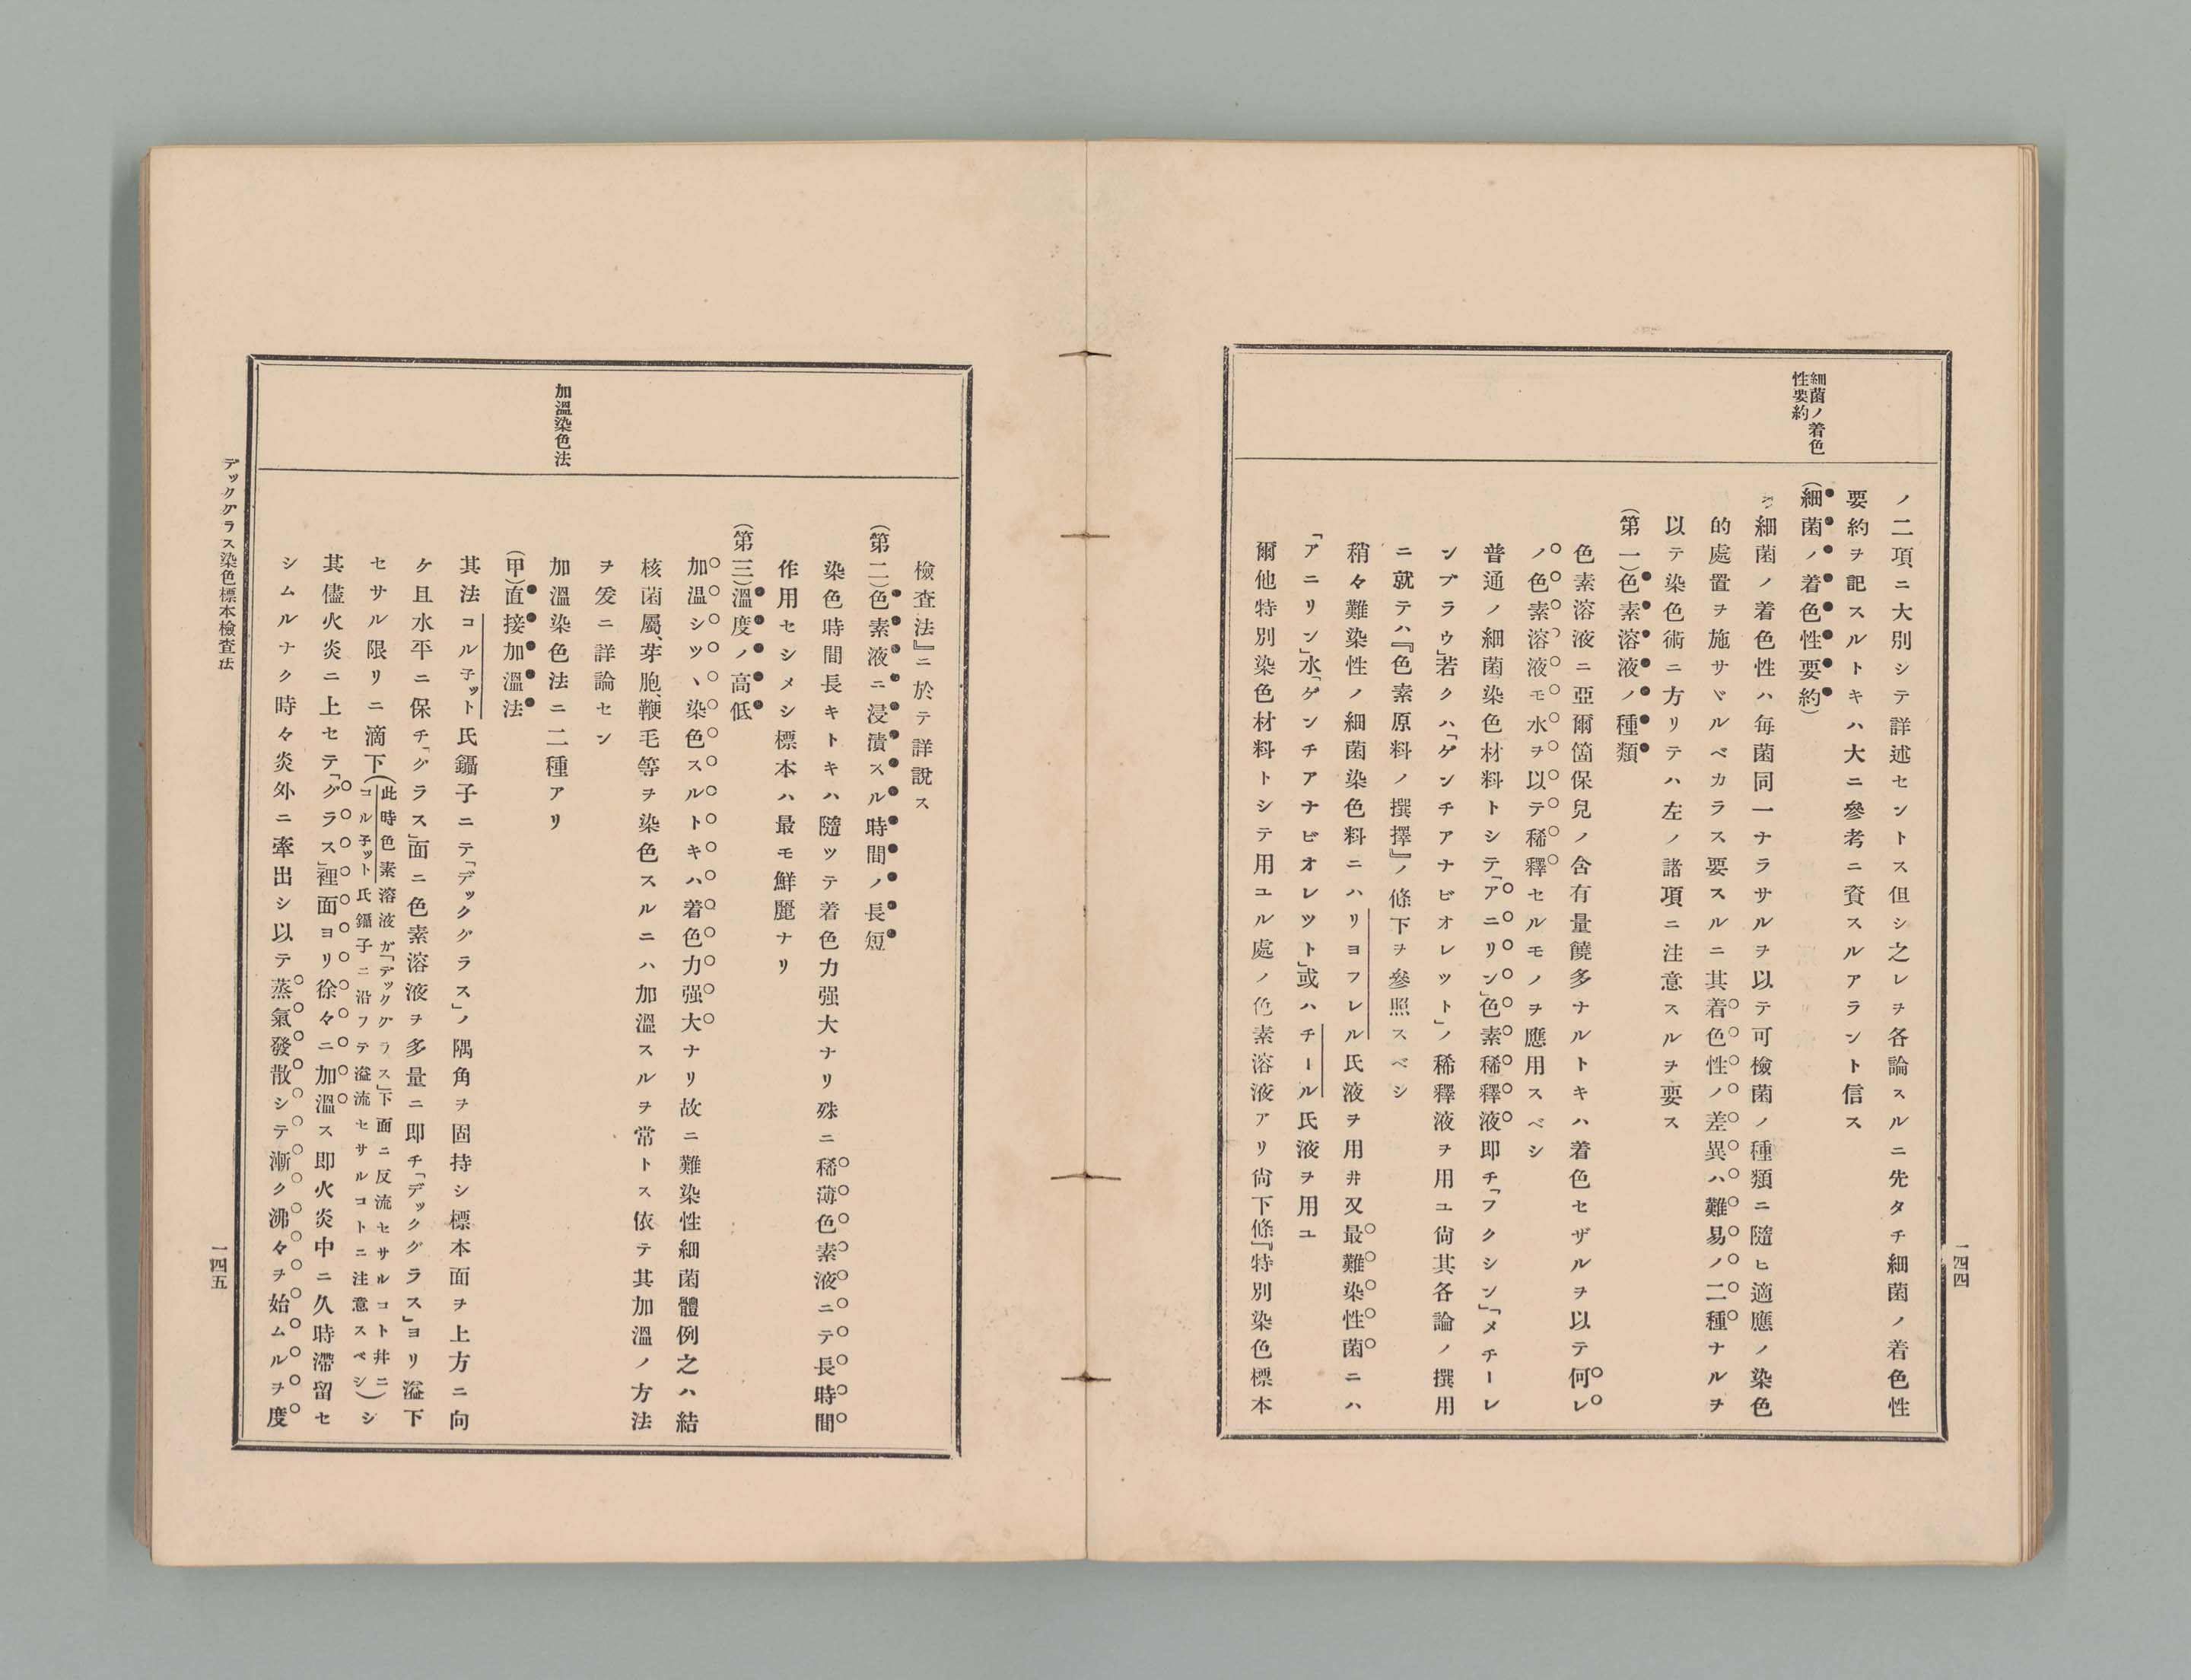 一四四
細菌ノ着色
性要約
ノ二項ニ大別シテ詳述セントス但シ之レヲ各論スルニ先タチ細菌ノ着色性
要約ヲ記スルトキハ大ニ參考ニ資スルアラント信ス
(細菌ノ着色性要約)
細菌ノ着色性ハ毎菌同一ナラサルヲ以テ可檢菌ノ種類ニ隨ヒ適應ノ染色
的處置ヲ施サヾルベカラス要スルニ其着色性ノ差異ハ難易ノ二種ナルヲ
以テ染色術ニ方リテハ左ノ諸項ニ注意スルヲ要ス
(第一)色素溶液ノ種類
色素溶液ニ亞爾箇保兒ノ含有量饒多ナルトキハ着色セザルヲ以テ何レ
ノ色素溶液モ水ヲ以テ稀釋セルモノヲ應用スベシ
普通ノ細菌染色材料トシテ「アニリン」色素稀釋液即チ「フクシン」「メチーレ
ンブラウ」若クハ「ゲンチアナビオレット」ノ稀釋液ヲ用ユ尙其各論ノ撰用
ニ就テハ『色素原料ノ撰擇』ノ條下ヲ參照スベシ
稍々難染性ノ細菌染色料ニハリヨフレル氏液ヲ用井又最難染性菌ニハ
「アニリン」水「ゲンチアナビオレツト」或ハチール氏液ヲ用ユ
爾他特別染色材料トシテ用ユル處ノ色素溶液アリ尙下條『特別染色標本
檢査法』ニ於テ詳說ス
(第二)色素液ニ浸漬スル時間ノ長短
染色時間長キトキハ隨ツテ着色力强大ナリ殊ニ稀薄色素液ニテ長時間
作用セシメシ標本ハ最モ鮮麗ナリ
(第三)溫度ノ高低
加溫シツヽ染色スルトキハ着色力强大ナリ故ニ難染性細菌體例之ハ結
核菌屬、芽胞、鞭毛等ヲ染色スルニハ加溫スルヲ常トス依テ其加溫ノ方法
ヲ爰ニ詳論セン
加溫染色法
加溫染色法ニ二種アリ
(甲)直接加溫法
其法コル子ット氏鑷子ニテ「デックグラス」ノ隅角ヲ固持シ標本面ヲ上方ニ向
ケ且水平ニ保チ「グラス」面ニ色素溶液ヲ多量ニ即チ「デックグラス」ヨリ溢下
セサル限リニ滴下(此時色素溶液ガ「デックグラス」下面ニ反流セサルコト井ニ
コル子ット氏鑷子ニ沿フテ溢流セサルコトニ注意スベシ)シ
其儘火炎ニ上セテ「グラス」裡面ヨリ徐々ニ加溫ス即火炎中ニ久時滯留セ
シムルナク時々炎外ニ牽出シ以テ蒸氣發散シテ漸ク沸々ヲ始ムルヲ度
デックグラス染色標本檢査法
一四五